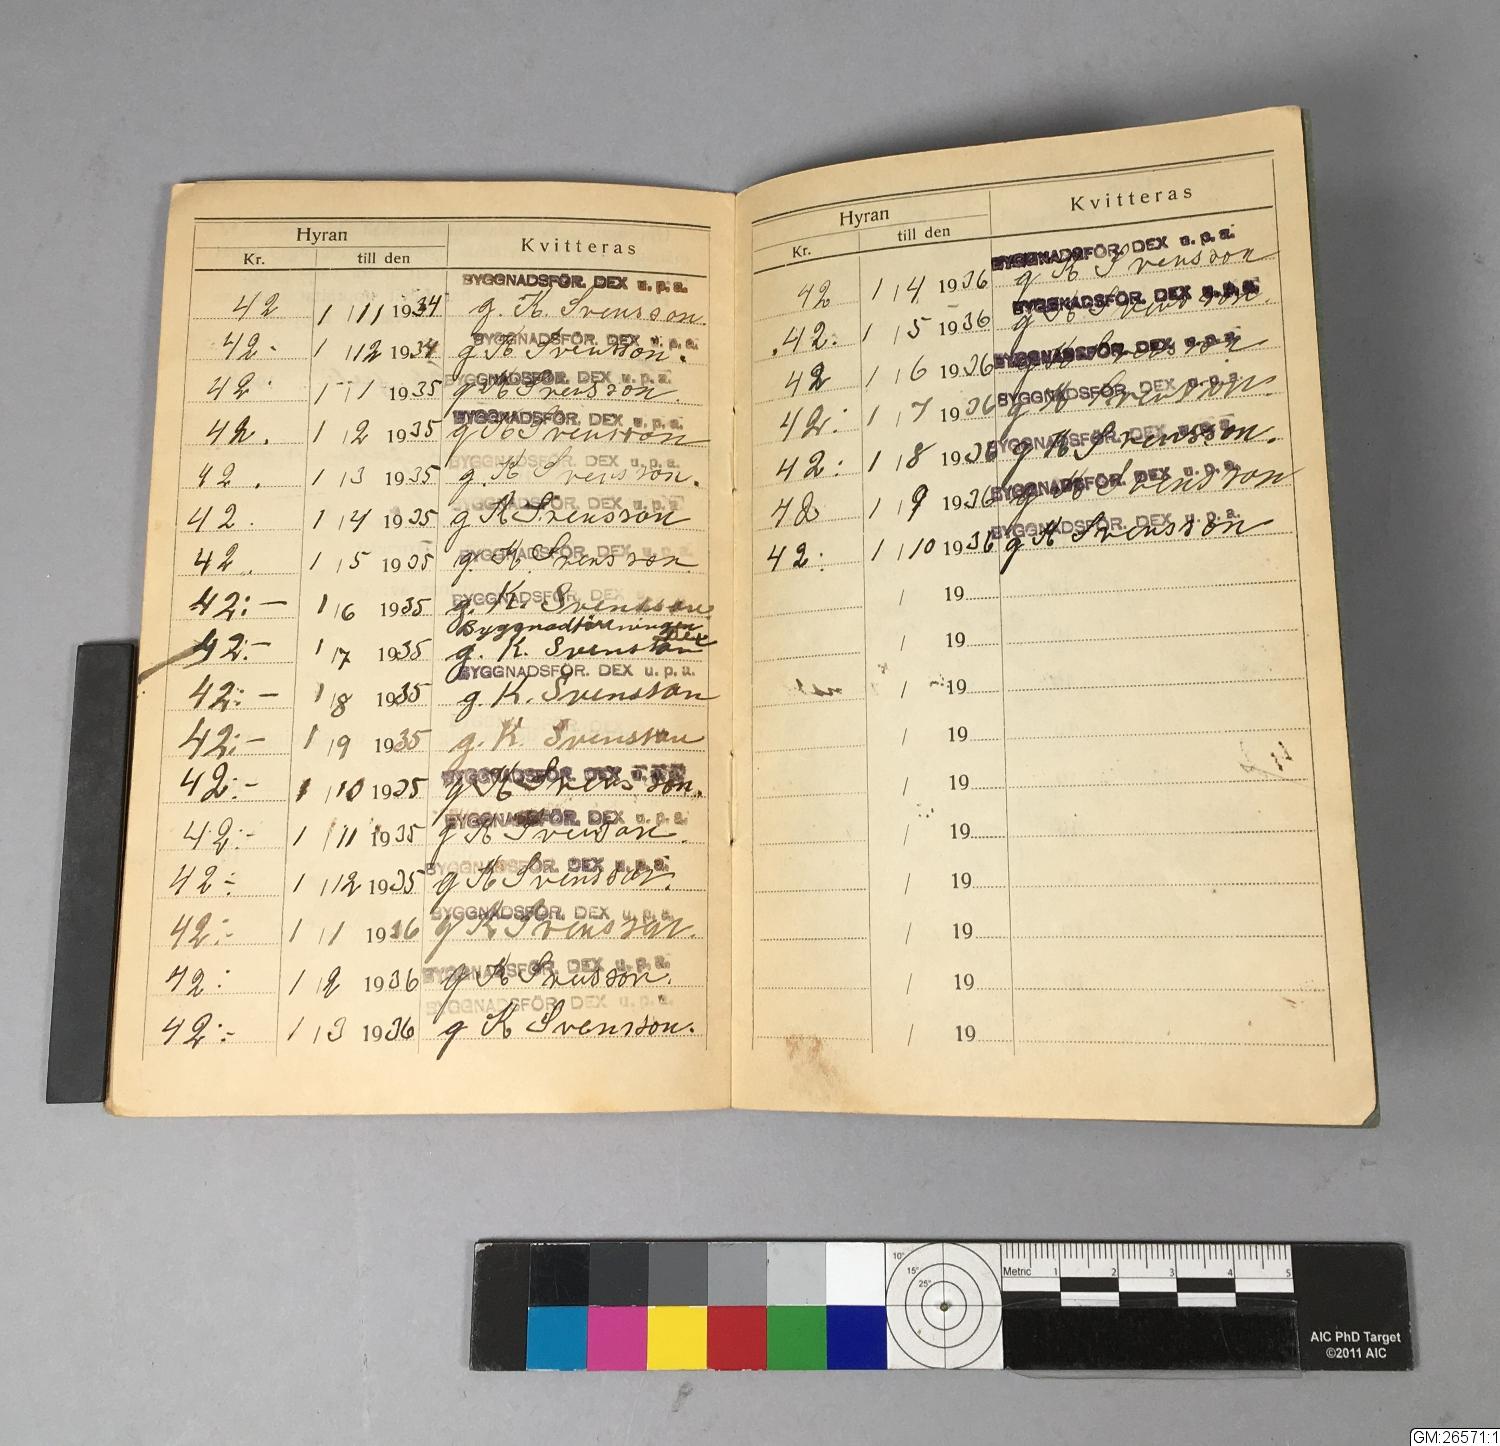 Hyran
Kvitteras
Kr.
till den
BYGGNADSFÖR. DEX u. p. a.
42 1 / 11 1934 g. K. Svensson.
BYGGNADSFÖR. DEX u. p. a.
42- 1 / 12 1934 g K Svensson.
BYGGNADSFÖR. DEX u. p. a.
42. 1 / 1 1935 g K Svensson.
BYGGNADSFÖR. DEX u. p. a.
42. 1 / 2 1935 g K Svensson
BYGGNADSFÖR. DEX u. p. a.
42. 1 / 3 1935 g. K Svensson.
BYGGNADSFÖR. DEX u. p. a.
42. 1 / 4 1935 g K Svensson
BYGGNADSFÖR. DEX u. p. a.
42. 1 / 5 1935 g. K. Svensson
BYGGNADSFÖR. DEX u. p. a.
42:- 1 / 6 1935 g. K. Svensson
Byggnadföreningen Dex
42:- 1 / 7 1935 g. K. Svensson
BYGGNADSFÖR. DEX u. p. a.
42:- 1 / 8 1935 g. K. Svensson
42:- 1 / 9 1935 g. K. Svensson
BYGGNADSFÖR. DEX u. p. a.
42:- 1 / 10 1935 g K Svensson.
BYGGNADSFÖR. DEX u. p. a.
42:- 1 / 11 1935 g K Svenson.
BYGGNADSFÖR. DEX u. p. a.
42:- 1 / 12 1935 g K Svensson.
BYGGNADSFÖR. DEX u. p. a.
42:- 1 / 1 1936 g K Svensson.
BYGGNADSFÖR. DEX u. p. a.
42: 1 / 2 1936 g K Svensson.
BYGGNADSFÖR. DEX u. p. a.
42:- 1 / 3 1936 g K Svensson.
Hyran
Kvitteras
Kr.
till den
BYGGNADSFÖR. DEX u. p. a.
42 1 / 4 1936 g K Svensson
BYGGNADSFÖR. DEX u. p. a.
42: 1 / 5 1936 g K Svensson.
BYGGNADSFÖR. DEX u. p. a.
42 1 / 6 1936 g K Svensson
BYGGNADSFÖR. DEX u. p. a.
42: 1 / 7 1936 g K Svensson.
BYGGNADSFÖR. DEX u. p. a.
42: 1 / 8 1936 g K Svensson.
BYGGNADSFÖR. DEX u. p. a.
42 1 / 9 1936 g K Svensson
BYGGNADSFÖR. DEX u. p. a.
42: 1 / 10 1936 g K Svensson
/ 19
/ 19
/ 19
/ 19
/ 19
/ 19
/ 19
/ 19
/ 19
/ 19
10°
15°
25°
Metric 1 2 3 4 5
AIC PhD Target
©2011 AIC
GM:26571:1